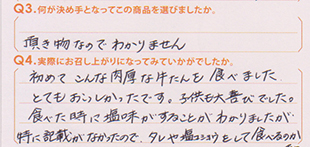 Q3.何が決め手となってこの商品を選びましたか。
頂き物なのでわかりません
Q4.実際にお召し上がりになってみていかがでしたか。
初めてこんな肉厚な牛たんを食べました
とてもおいしかったです。子供も大喜びでした。
食べた時に塩味がすることがわかりましたが
特に記載がなかったので、タレや塩コショウをして食べるのか